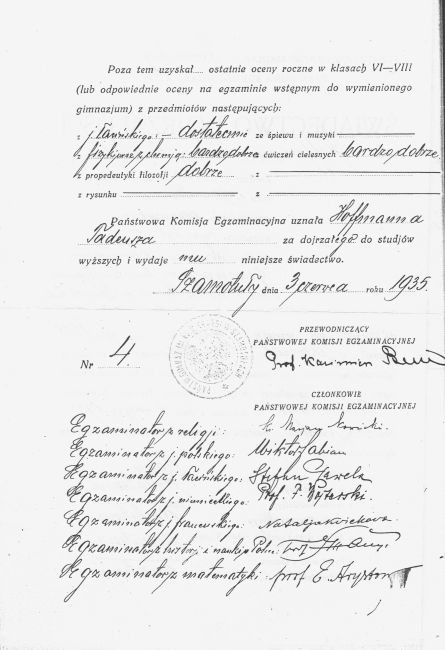 Poza tem uzyskał ..... ostatnie oceny roczne w klasach VI—VIII
(lub odpowiednie oceny na egzaminie wstępnym do wymienionego
gimnazjum) z przedmiotów następujących:
z j. łacińskiego: — dostatecznie ze śpiewu i muzyki
z fizyki wraz z chemją: bardzo dobrze z ćwiczeń cielesnych bardzo dobrze
z propedeutyki filozofji dobrze z
z rysunku z
Państwowa Komisja Egzaminacyjna uznała Hoffmanna
Tadeusza za dojrzałego do studjów
wyższych i wydaje mu niniejsze świadectwo.
Szamotuły dnia 3 czerwca roku 1935.
PRZEWODNICZĄCY
PAŃSTWOWEJ KOMISJI EGZAMINACYJNEJ
Nr 4
Prof. Kazimierz
CZŁONKOWIE
PAŃSTWOWEJ KOMISJI EGZAMINACYJNEJ
Egzaminator z religji:
Egzaminator z j. polskiego: Wiktor Fabian
Egzaminator z j. łacińskiego: Stefan Pawela
Egzaminator z j. niemieckiego: Prof. F.
Egzaminator z j. francuskiego:
Egzaminator z historji i nauki o Polsce:
Egzaminator z matematyki: prof E.